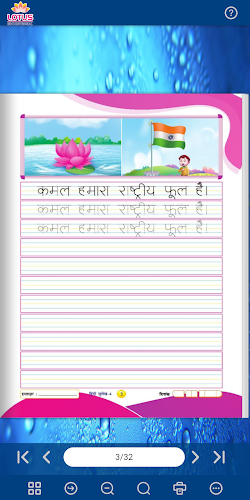 LOTUS
कमल हमारा राष्ट्रीय फूल है।
कमल हमारा राष्ट्रीय फूल है।
कमल हमारा राष्ट्रीय फूल है।
हस्ताक्षर :
3
दिनांक :
3/32